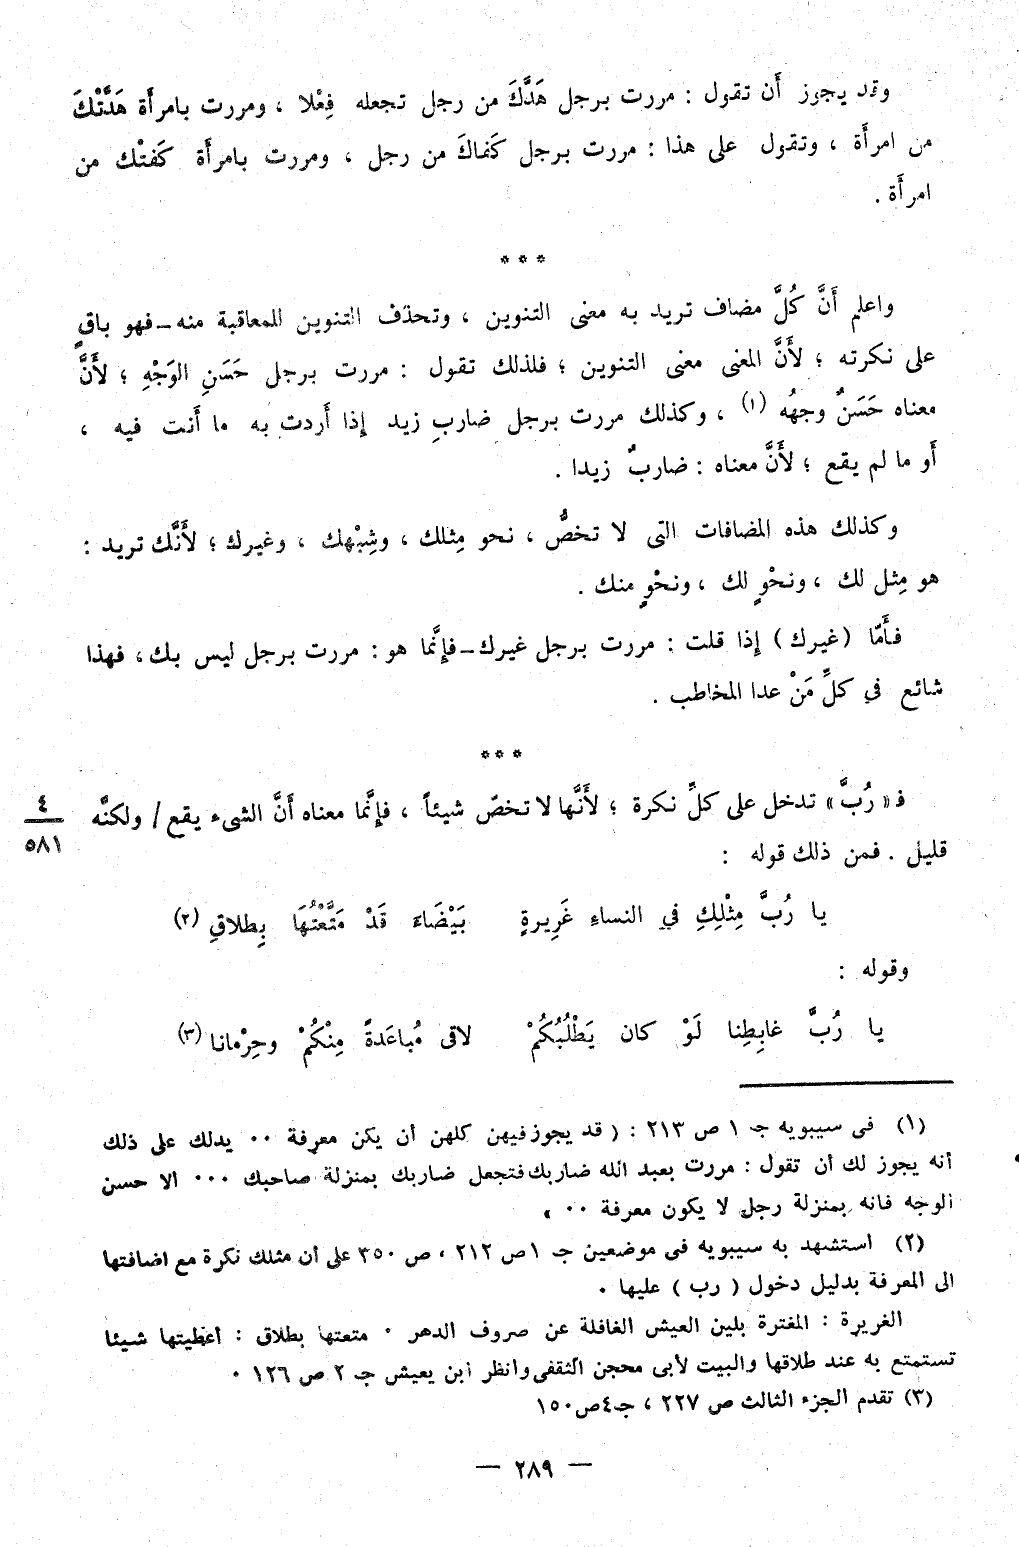 وقد يجوز أَن تقول : مررت برجل هَدَّكَ من رجل تجعله فِعْلا ، ومررت بامرأَة هَدَّتْكَ
من امرأَة ، وتقول على هذا : مررت برجل كَفاكَ من رجل ، ومررت بامرأَة كَفتْك من
امرأَة .
* * *
واعلم أَنَّ كُلَّ مضاف تريد به معنى التنوين ، وتحذف التنوين للمعاقبة منه – فهو باقٍ
على نكرته ؛ لأَنَّ المعنى معنى التنوين ؛ فلذلك تقول : مررت برجل حَسَنِ الوَجْهِ ؛ لأَنَّ
معناه حَسَنٌ وجهُه (١) ، وكذلك مررت برجل ضاربِ زيد إِذا أَردت به ما أَنت فيه ،
أَو ما لم يقع ؛ لأَنَّ معناه : ضاربٌ زيدا .
وكذلك هذه المضافات التى لا تخصُّ ، نحو مِثلك ، وشِبْهِك ، وغيرك ؛ لأَنَّك تريد :
هو مِثل لك ، ونحْوٍ لك ، ونحْوٍ منك .
فأَمّا (غيرك) إِذا قلت : مررت برجل غيرك – فإِنَّما هو : مررت برجل ليس بك ، فهذا
شائع في كلِّ مَنْ عدا المخاطب .
* * *
فـ « رُبَّ » تدخل على كلِّ نكرة ؛ لأَنَّها لا تخصّ شيئاً ، فإِنَّما معناه أَنَّ الشىء يقع / ولكنَّه
٤
٥٨١
قليل . فمن ذلك قوله :
يا رُبَّ مِثْلِكِ في النساءِ غَرِيرةٍ بَيْضَاءَ قَدْ مَتَّعْتُهَا بِطلاقِ (٢)
وقوله :
يا رُبَّ غابِطِنا لَوْ كان يَطْلُبُكُمْ لاقى مُباعَدةً مِنْكُمْ وحِرْمانا (٣)
(١) فى سيبويه جـ ١ ص ٢١٣ : ( قد يجوز فيهن كلهن أن يكن معرفة ٠٠ يدلك على ذلك
أنه يجوز لك أن تقول : مررت بعبد الله ضاربك فتجعل ضاربك بمنزلة صاحبك ٠٠٠ الا حسن
الوجه فانه بمنزلة رجل لا يكون معرفة ٠٠ »
(٢) استشهد به سيبويه فى موضعين جـ ١ ص ٢١٢ ، ص ٣٥٠ على أن مثلك نكرة مع اضافتها
الى المعرفة بدليل دخول ( رب ) عليها ٠
الغريرة : المغترة بلين العيش الغافلة عن صروف الدهر ٠ متعتها بطلاق : أعطيتها شيئا
تستمتع به عند طلاقها والبيت لأبى محجن الثقفى وانظر ابن يعيش جـ ٢ ص ١٢٦ ٠
(٣) تقدم الجزء الثالث ص ٢٢٧ ، جـ٤ ص ١٥٠
— ٢٨٩ —